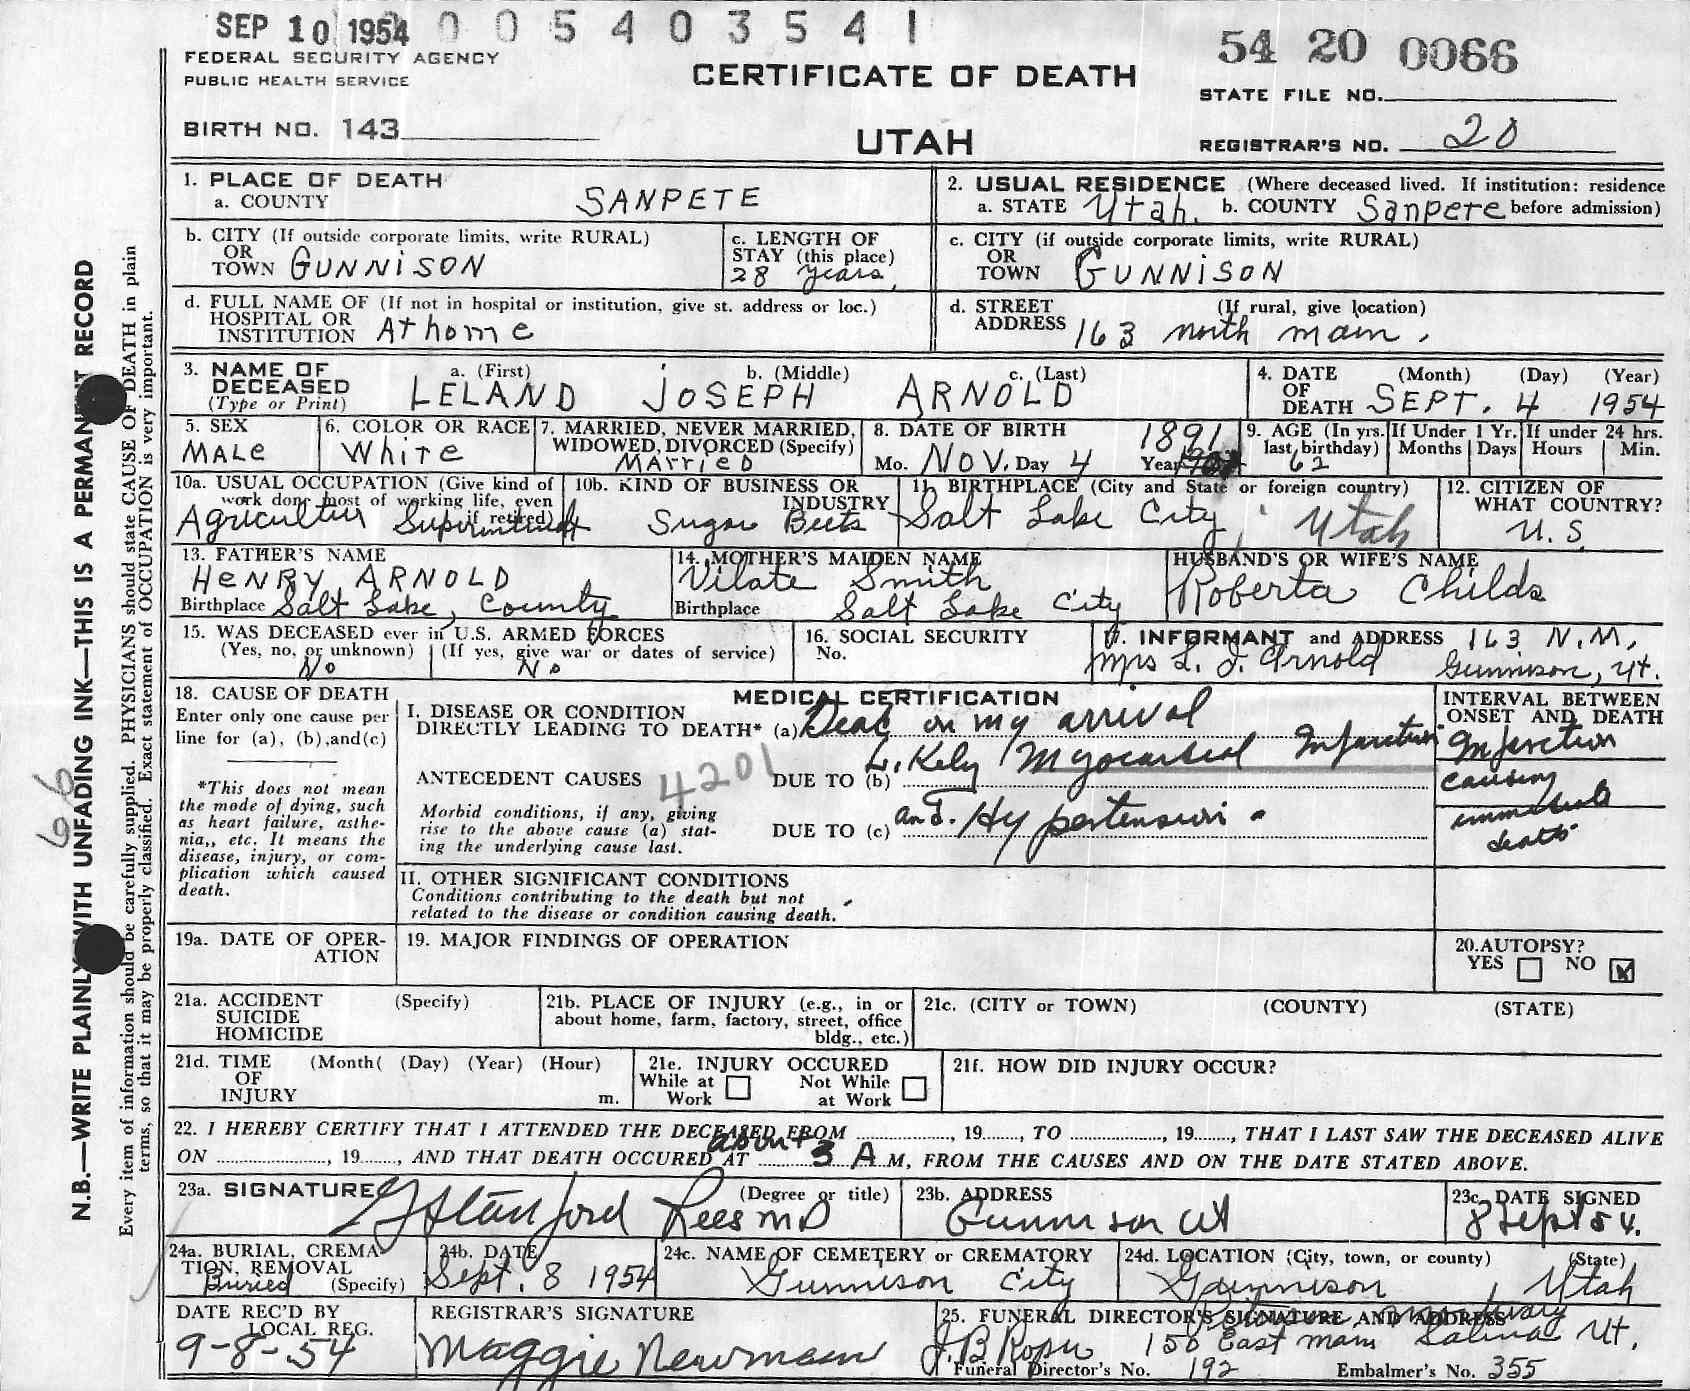 SEP 10 1954 0 0 5 4 0 3 5 4 1
54 20 0066
FEDERAL SECURITY AGENCY
PUBLIC HEALTH SERVICE
CERTIFICATE OF DEATH
STATE FILE NO.
BIRTH NO. 143
UTAH
REGISTRAR'S NO. 20
1. PLACE OF DEATH
a. COUNTY SANPETE
2. USUAL RESIDENCE (Where deceased lived. If institution: residence
a. STATE Utah. b. COUNTY Sanpete before admission)
b. CITY (If outside corporate limits, write RURAL)
OR
TOWN GUNNISON
c. LENGTH OF
STAY (this place)
28 years
c. CITY (if outside corporate limits, write RURAL)
OR
TOWN GUNNISON
d. FULL NAME OF (If not in hospital or institution, give st. address or loc.)
HOSPITAL OR
INSTITUTION At home
d. STREET (If rural, give location)
ADDRESS 163 north main.
3. NAME OF DECEASED
(Type or Print)
a. (First) b. (Middle) c. (Last)
LELAND JOSEPH ARNOLD
4. DATE (Month) (Day) (Year)
OF
DEATH SEPT. 4 1954
5. SEX
MALe
6. COLOR OR RACE
White
7. MARRIED, NEVER MARRIED,
WIDOWED, DIVORCED (Specify)
MArried
8. DATE OF BIRTH 1891
Mo. NOV. Day 4 Year
9. AGE (In yrs. last birthday)
62
If Under 1 Yr.
Months Days
If under 24 hrs.
Hours Min.
10a. USUAL OCCUPATION (Give kind of
work done most of working life, even
if retired)
10b. KIND OF BUSINESS OR
INDUSTRY
Sugar Beets
11. BIRTHPLACE (City and State or foreign country)
Salt Lake City, Utah
12. CITIZEN OF
WHAT COUNTRY?
U.S.
13. FATHER'S NAME
HeNRY ARNOLD
Birthplace Salt Lake, County
14. MOTHER'S MAIDEN NAME
Vilate Smith
Birthplace Salt Lake City
HUSBAND'S OR WIFE'S NAME
Roberta Childs
15. WAS DECEASED ever in U.S. ARMED FORCES
(Yes, no, or unknown) (If yes, give war or dates of service)
No No
16. SOCIAL SECURITY
No.
17. INFORMANT and ADDRESS 163 N.M.
Mrs L. J. Arnold Gunnison, Ut.
18. CAUSE OF DEATH
Enter only one cause per
line for (a), (b), and (c)
*This does not mean
the mode of dying, such
as heart failure, asthe-
nia,, etc. It means the
disease, injury, or com-
plication which caused
death.
MEDICAL CERTIFICATION
I. DISEASE OR CONDITION
DIRECTLY LEADING TO DEATH* (a) Dead on my arrival
Likely Myocardial Infarction
ANTECEDENT CAUSES 4201 DUE TO (b)
Morbid conditions, if any, giving
rise to the above cause (a) stat-
ing the underlying cause last.
DUE TO (c) and Hypertension.
INTERVAL BETWEEN
ONSET AND DEATH
Infarction
causing
immediate
death
II. OTHER SIGNIFICANT CONDITIONS
Conditions contributing to the death but not
related to the disease or condition causing death.
19a. DATE OF OPER-
ATION
19. MAJOR FINDINGS OF OPERATION
20. AUTOPSY?
YES NO
21a. ACCIDENT (Specify)
SUICIDE
HOMICIDE
21b. PLACE OF INJURY (e.g., in or
about home, farm, factory, street, office
bldg., etc.)
21c. (CITY or TOWN) (COUNTY) (STATE)
21d. TIME (Month( (Day) (Year) (Hour)
OF
INJURY m.
21e. INJURY OCCURED
While at Work Not While at Work
21f. HOW DID INJURY OCCUR?
22. I HEREBY CERTIFY THAT I ATTENDED THE DECEASED FROM , 19 , TO , 19 , THAT I LAST SAW THE DECEASED ALIVE
ON , 19 , AND THAT DEATH OCCURED AT about 3 A M, FROM THE CAUSES AND ON THE DATE STATED ABOVE.
23a. SIGNATURE (Degree or title)
G Stanford Rees MD
23b. ADDRESS
Gunnison Ut
23c. DATE SIGNED
8 Sept 54.
24a. BURIAL, CREMA-
TION, REMOVAL
Buried (Specify)
24b. DATE
Sept. 8 1954
24c. NAME OF CEMETERY or CREMATORY
Gunnison City
24d. LOCATION (City, town, or county) (State)
Gunnison, Utah
DATE REC'D BY
LOCAL REG.
9-8-54
REGISTRAR'S SIGNATURE
Maggie Newman
25. FUNERAL DIRECTOR'S SIGNATURE AND ADDRESS
Mortuary
150 East Main Salina Ut.
Funeral Director's No. 192 Embalmer's No. 355
N.B.—WRITE PLAINLY WITH UNFADING INK—THIS IS A PERMANENT RECORD
Every item of information should be carefully supplied. PHYSICIANS should state CAUSE OF DEATH in plain
terms, so that it may be properly classified. Exact statement of OCCUPATION is very important.
66